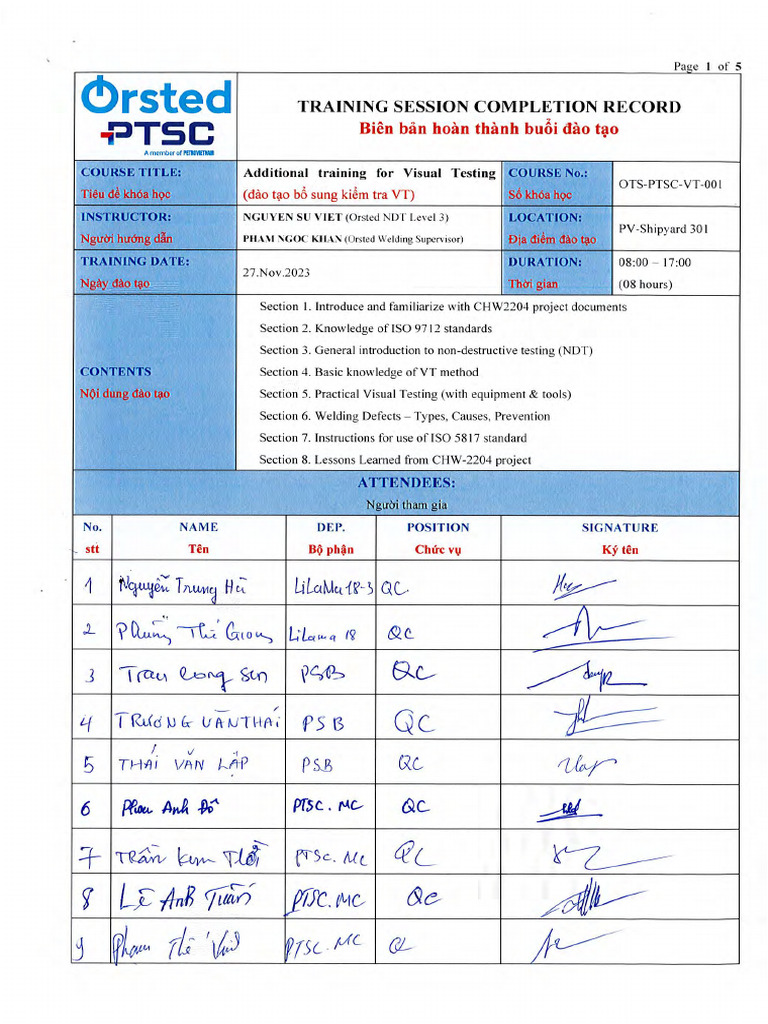 Page 1 of 5
Orsted
PTSC
A member of PETROVIETNAM
TRAINING SESSION COMPLETION RECORD
Biên bản hoàn thành buổi đào tạo
COURSE TITLE:
Tiêu đề khóa học
Additional training for Visual Testing
(đào tạo bổ sung kiểm tra VT)
COURSE No.:
Số khóa học
OTS-PTSC-VT-001
INSTRUCTOR:
Người hướng dẫn
NGUYEN SU VIET (Orsted NDT Level 3)
PHAM NGOC KHAN (Orsted Welding Supervisor)
LOCATION:
Địa điểm đào tạo
PV-Shipyard 301
TRAINING DATE:
Ngày đào tạo
27.Nov.2023
DURATION:
Thời gian
08:00 – 17:00
(08 hours)
CONTENTS
Nội dung đào tạo
Section 1. Introduce and familiarize with CHW2204 project documents
Section 2. Knowledge of ISO 9712 standards
Section 3. General introduction to non-destructive testing (NDT)
Section 4. Basic knowledge of VT method
Section 5. Practical Visual Testing (with equipment & tools)
Section 6. Welding Defects – Types, Causes, Prevention
Section 7. Instructions for use of ISO 5817 standard
Section 8. Lessons Learned from CHW-2204 project
ATTENDEES:
Người tham gia
No. NAME DEP. POSITION SIGNATURE
stt Tên Bộ phận Chức vụ Ký tên
1 Nguyễn Trung Hà LiLaMa 18-3 QC
2 Phùng Thế Giong Lilama 18 QC
3 Tran Cong Sen PSB QC
4 TRƯƠNG VĂN THÁI PSB QC
5 THÁI VĂN LẬP PSB QC
6 Phan Anh Đô PTSC.MC QC
7 Trần Kim PTSC.MC QC
8 LÊ ANH TUẤN PTSC.MC QC
9 Pham Thế PTSC.MC QC